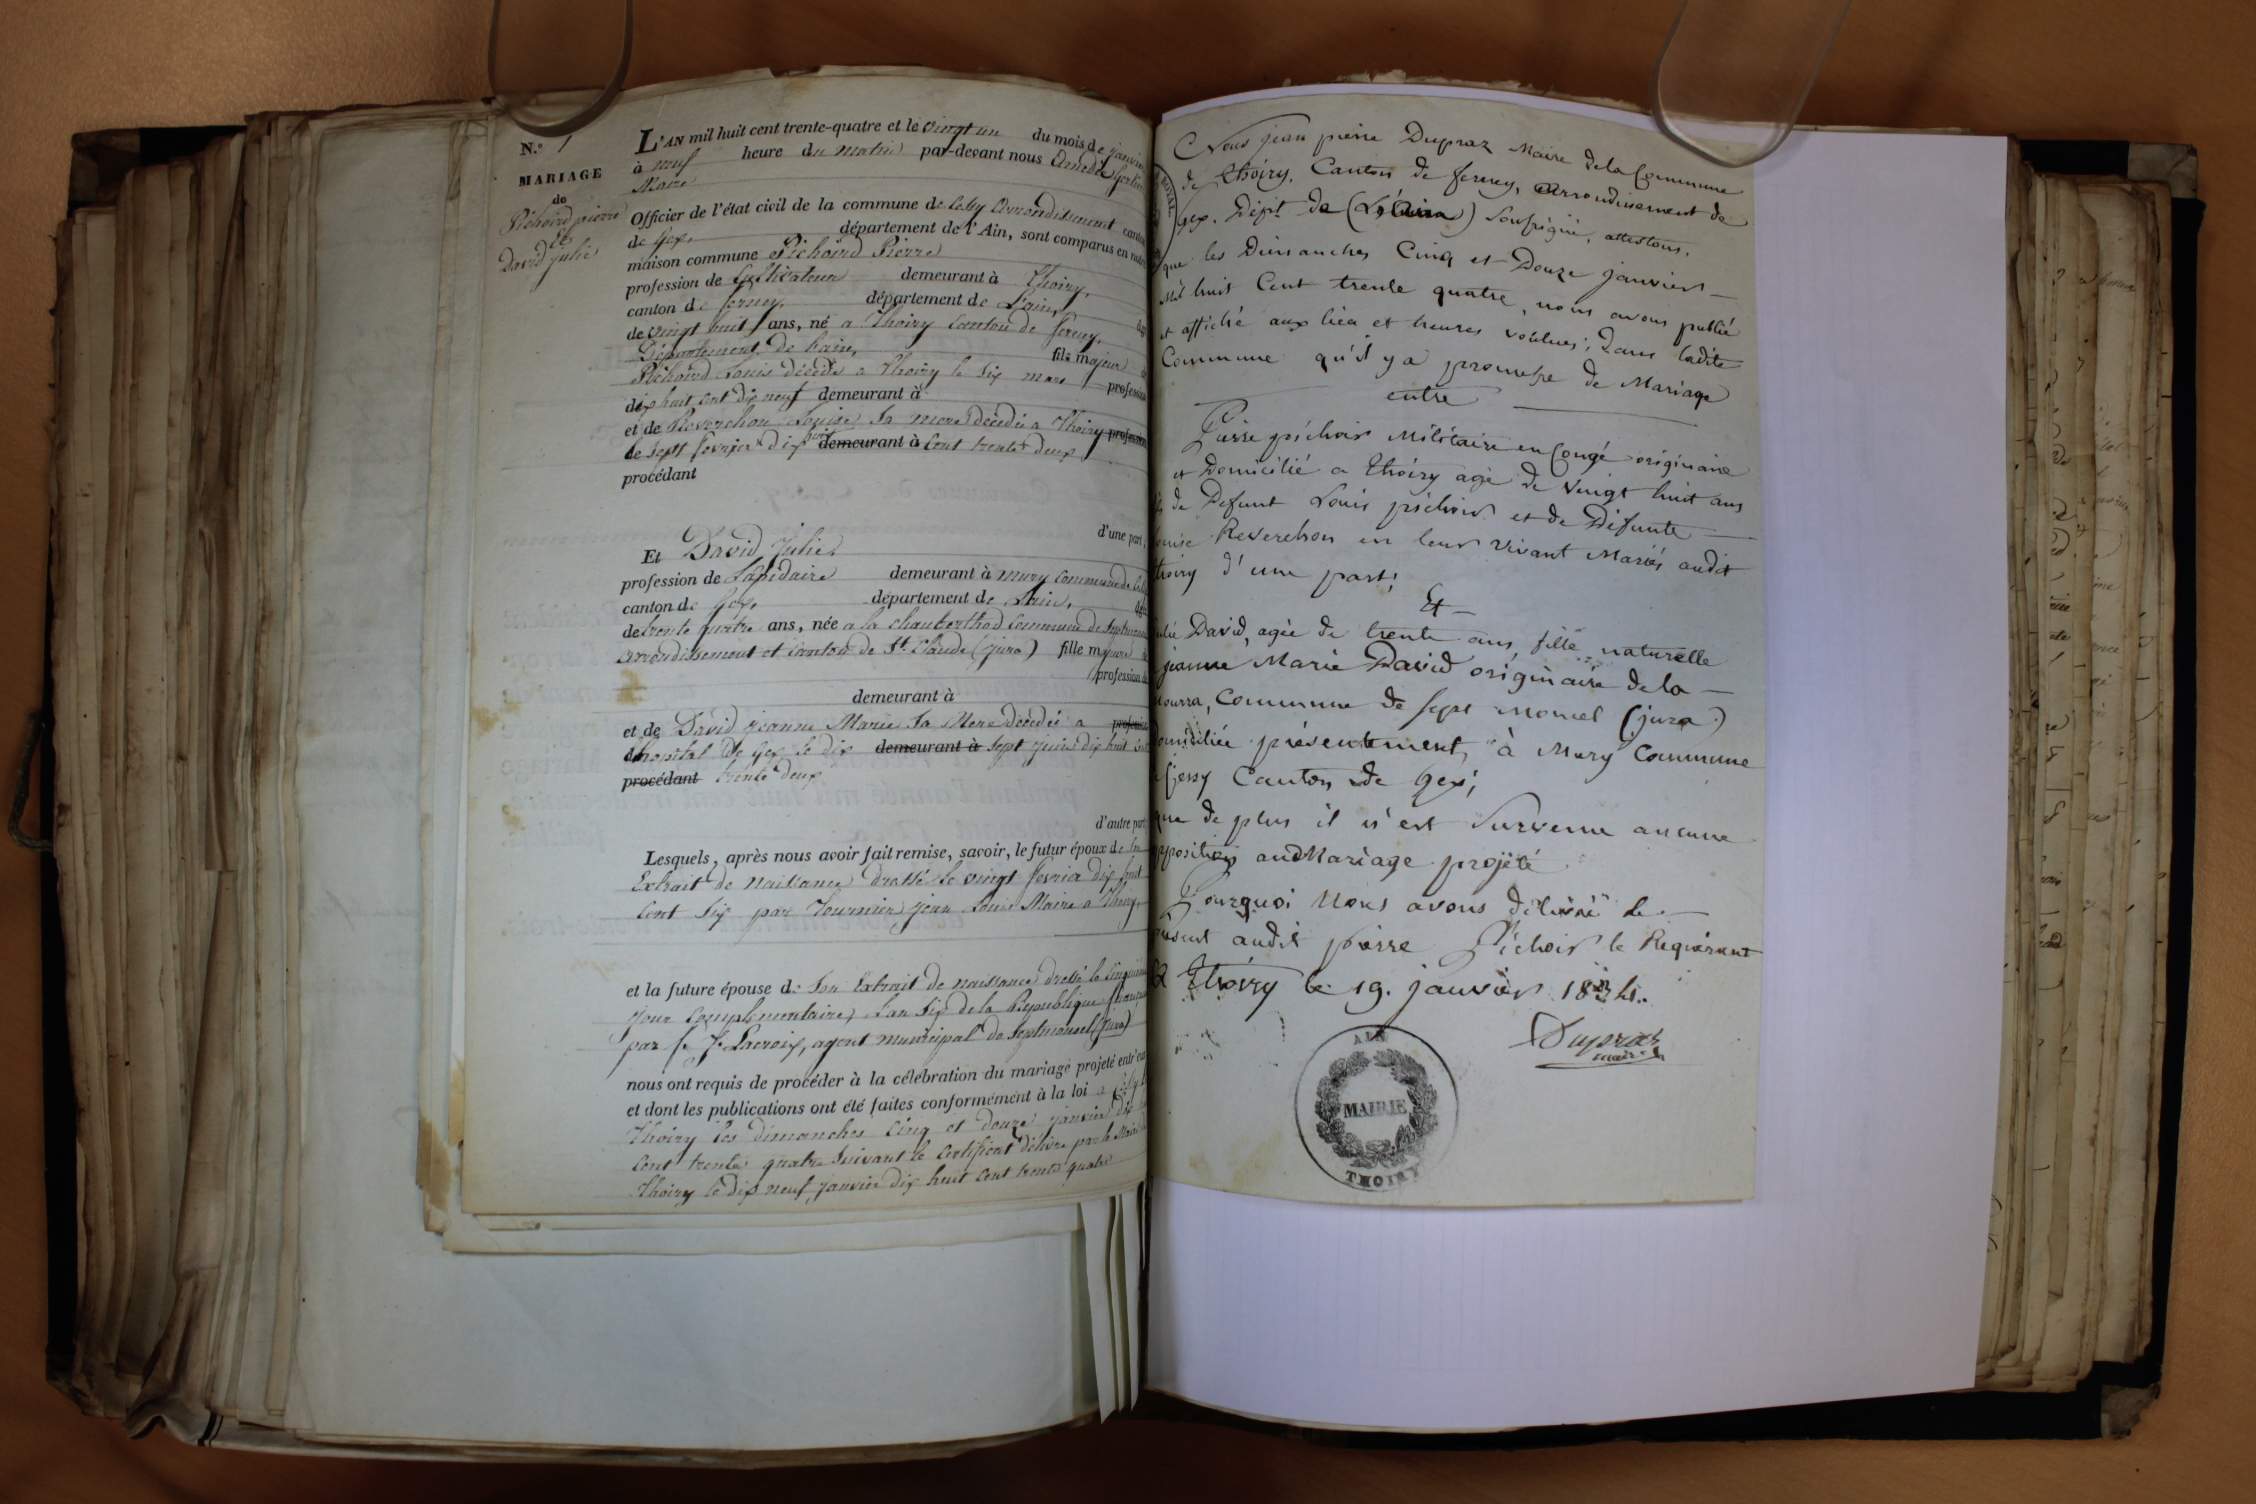 N.º 1
MARIAGE
de
Pichoird pierre
et
David julie
L'AN mil huit cent trente-quatre et le vingt un du mois de janvier
à neuf heure du matin par-devant nous
Maire
Officier de l'état civil de la commune de Cessy Arrondissement canton
de Gex. département de l'Ain, sont comparus en notre
maison commune Pichoird Pierre
profession de Cultivateur demeurant à Thoiry,
canton de ferney, département de L'ain,
de vingt huit ans, né a Thoiry Canton de ferney,
Département de L'ain, fils majeur
Pichoird Louis décédé a Thoiry le six mars profession
dix huit cent dix neuf demeurant à
et de Reverchon Louise Sa mere décédée a Thoiry profession
le sept fevrier dix huit demeurant à Cent trente deux
procédant
d'une part,
Et David Julie,
profession de Lapidaire demeurant à mury commune de
canton de Gex, département de L'ain,
de trente quatre ans, née a la chauberthod Commune de Septmoncel
arrondissement et Canton de St. Claude (jura) fille majeure
profession de
demeurant à
et de David jeanne Marie Sa Mere décédée a profession
L'hopital de Gex le dix demeurant à sept juin dix huit cent
procédant trente deux
d'autre part
Lesquels, après nous avoir fait remise, savoir, le futur époux de Son
Extrait de naissance dressé le vingt fevrier dix huit
Cent six par Tournier jean Louis Maire a Thoiry,
et la future épouse de Son Extrait de naissance dressé le cinquième
jour Complémentaire, L'an Six de la République française
par f. J. Lacroix, agent municipal de Septmoncel (jura)
nous ont requis de procéder à la célébration du mariage projeté entr'eux
et dont les publications ont été faites conformément à la loi a
Thoiry les dimanches cinq et douze janvier dix
cent trente quatre Suivant le Certificat délivré par le Maire
Thoiry le dix neuf janvier dix huit cent trente quatre
ROYAL
Nous jean pierre Dupraz Maire dela Commune
de Thoiry, Canton de ferney, Arrondissement de
Gex. Dépt. de (L'Ain) Soussigné, attestons,
que les Dimanches Cinq et Douze janvier
Mil huit Cent trente quatre, nous avons publié
et affiché aux lieu et heures voulues; Dans ladite
Commune qu'il y a promesse de Mariage
entre
Pierre pichoir Militaire en Congé originaire
et Domicilié a Thoiry agé de Vingt huit ans
fils de Defunt Louis pichoir et de Défunte
Louise Reverchon en leur vivant Mariés audit
thoiry d'une part;
Et
julie David, agée de trente ans, fille naturelle
jeanne Marie David originaire de la
Commune de Sept Moncel (jura)
domiciliée présentement, à Mury Commune
Cessy Canton de Gex;
que de plus il n'est Survenu aucune
opposition au dMariage projété
Pourquoi Nous avons délivré le
présent audit pierre Pichoir le Requérant
A Thoiry le 19. janvier 1834.
Dupraz
maire
AIN
MAIRIE
THOIRY